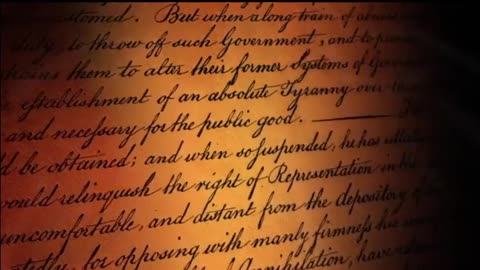 stomed. But when a long train of
duty, to throw off such Government, and to
trains them to alter their former Systems of
establishment of an absolute Tyranny over
and neceſsary for the public good. —
d be obtained; and when so suspended, he has
would relinquish the right of Representation in
uncomfortable, and distant from the depository of
tedly, for opposing with manly firmneſs his
of Annihilation, have